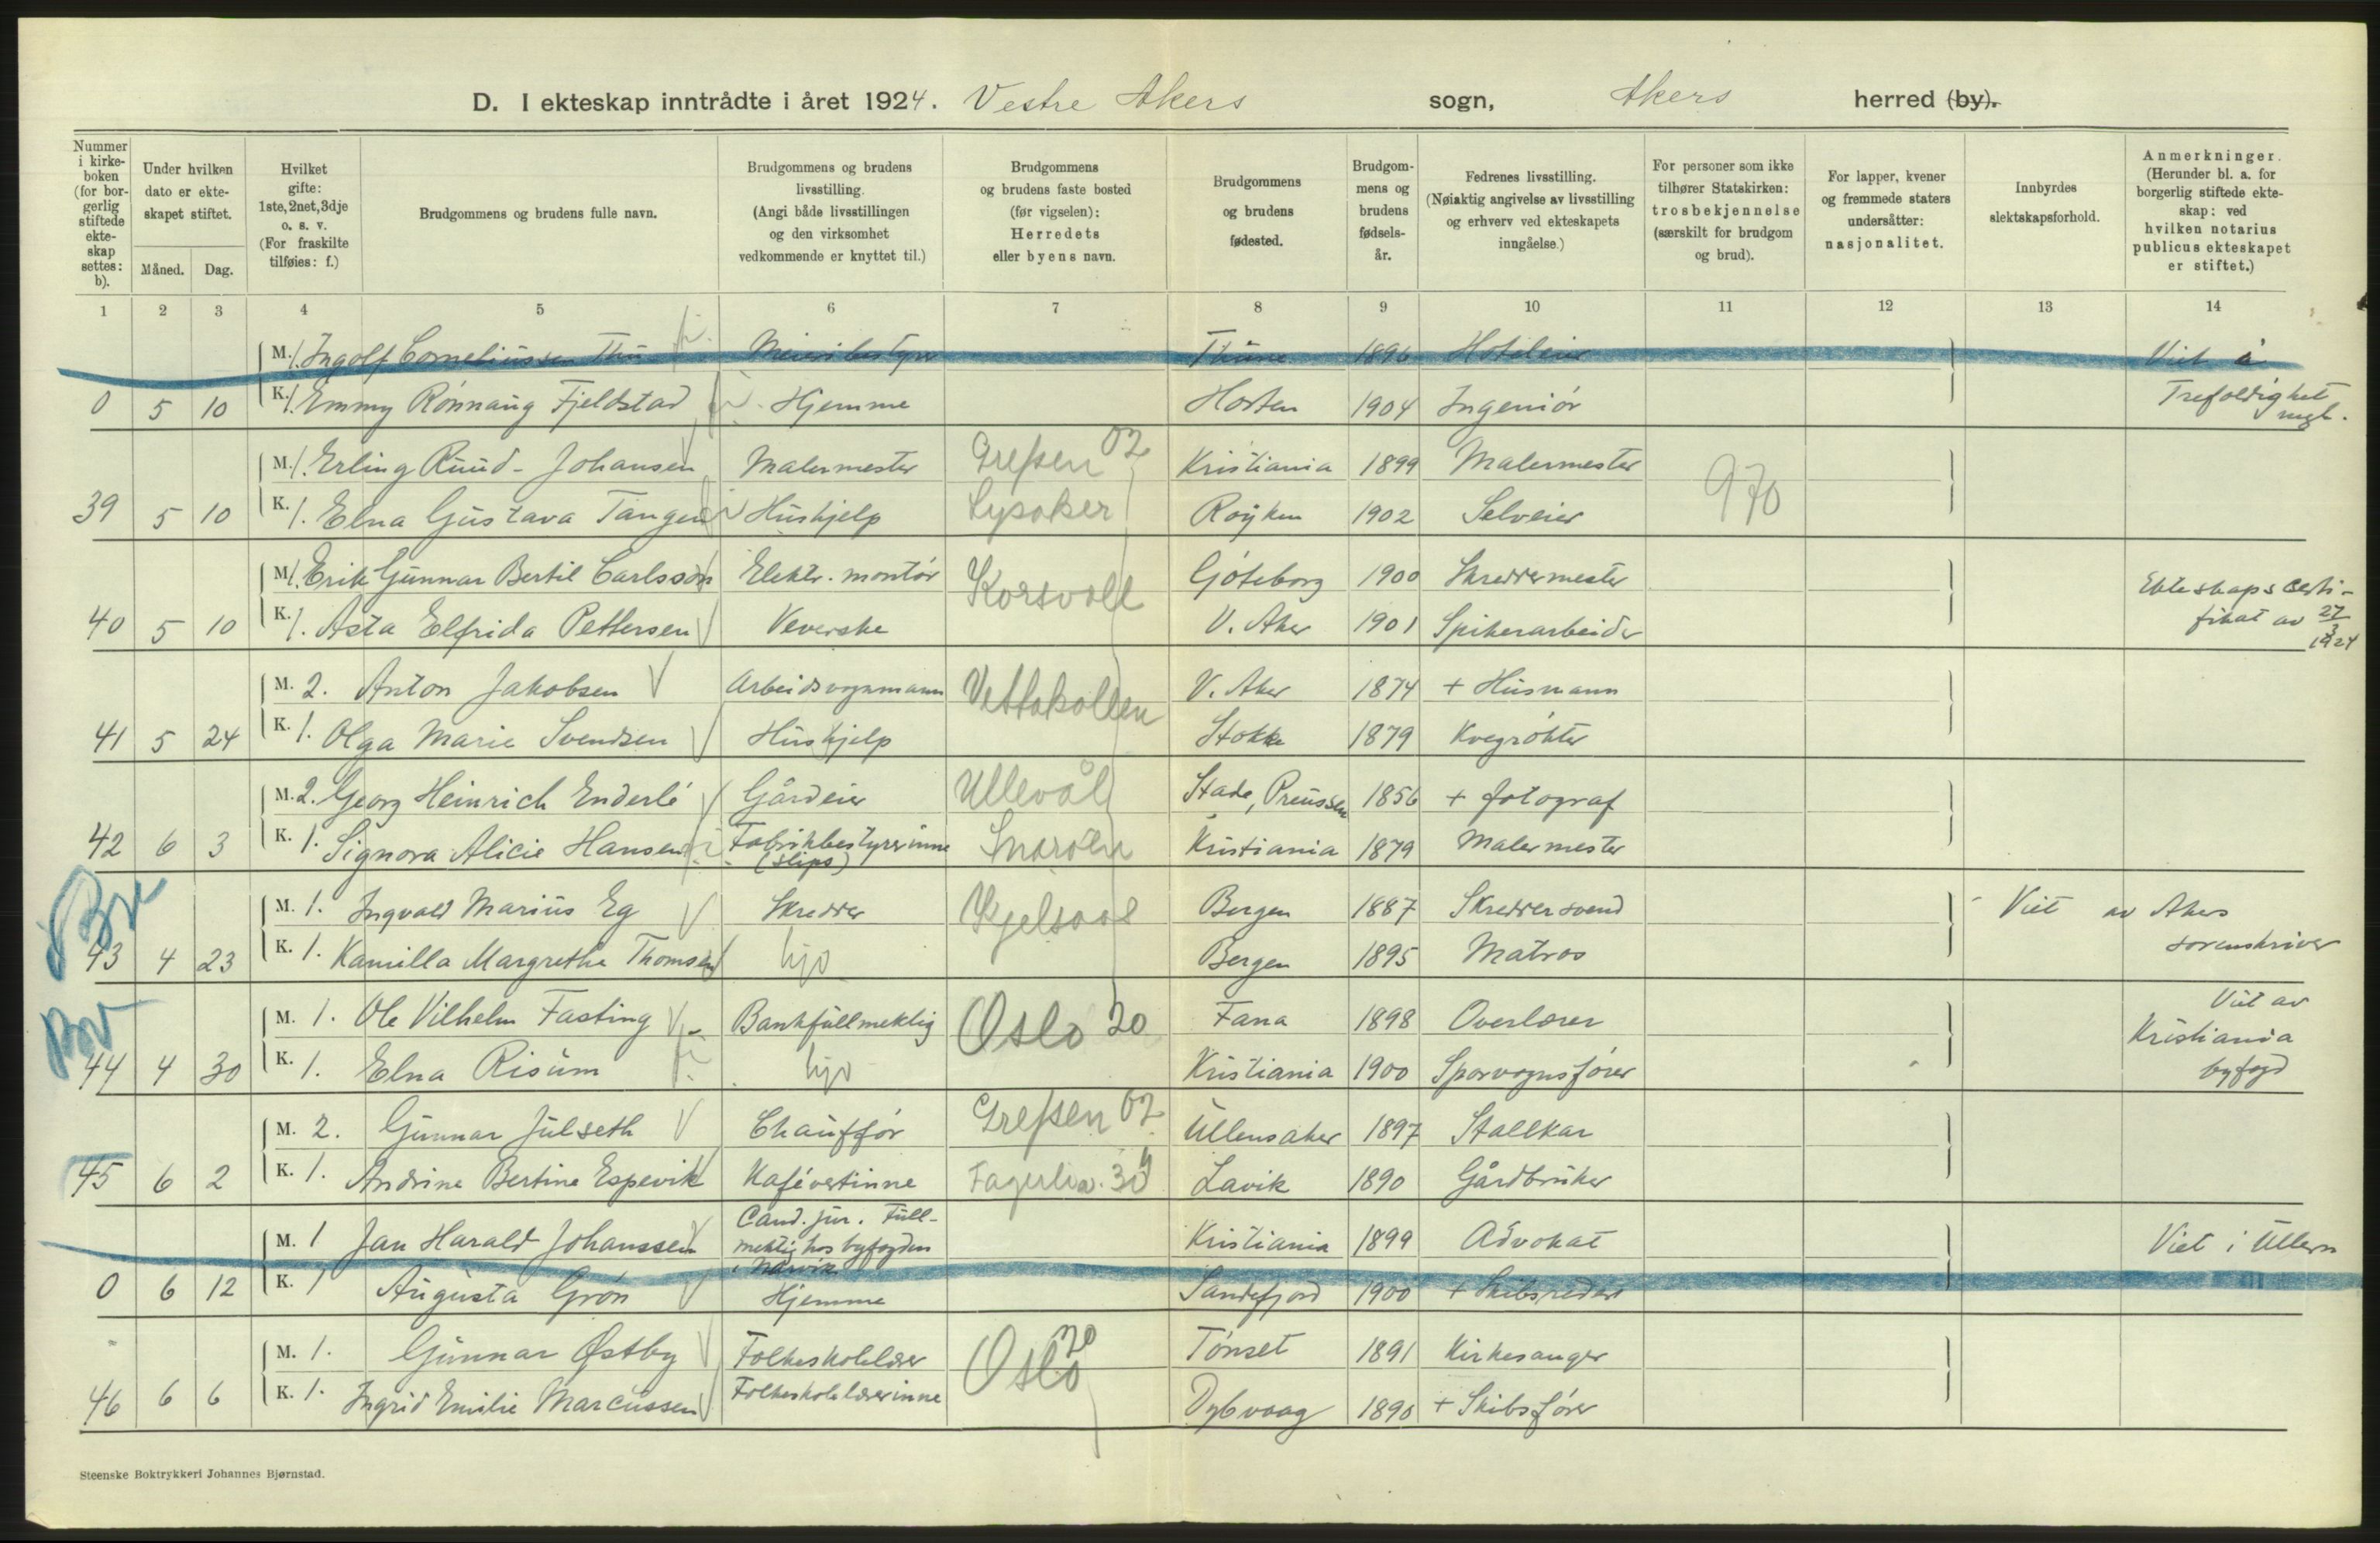 D. I ekteskap inntrådte i året 1924. Vestre Akers sogn, Akers herred (by).
Nummer i kirkeboken (for borgerlig stiftede ekteskap settes: b).
Under hvilken dato er ekteskapet stiftet.
Måned. Dag.
Hvilket gifte: 1ste, 2net, 3dje o. s. v. (For fraskilte tilføies: f.)
Brudgommens og brudens fulle navn.
Brudgommens og brudens livsstilling. (Angi både livsstillingen og den virksomhet vedkommende er knyttet til.)
Brudgommens og brudens faste bosted (før vigselen): Herredets eller byens navn.
Brudgommens og brudens fødested.
Brudgommens og brudens fødselsår.
Fedrenes livsstilling. (Nøiaktig angivelse av livsstilling og erhverv ved ekteskapets inngåelse.)
For personer som ikke tilhører Statskirken: trosbekjennelse (særskilt for brudgom og brud).
For lapper, kvener og fremmede staters undersåtter: nasjonalitet.
Innbyrdes slektskapsforhold.
Anmerkninger. (Herunder bl. a. for borgerlig stiftede ekteskap: ved hvilken notarius publicus ekteskapet er stiftet.)
1 2 3 4 5 6 7 8 9 10 11 12 13 14
M. 1. Ingolf Corneliussen Meieribestyrer 1896 Viet i
0 5 10 K. 1. Emmy Rönnaug Fjeldstad Hjemme Horten 1904 Ingeniör Trefoldighet
M. 1. Erling Ruud-Johansen Malermester Grefsen 02 Kristiania 1899 Malermester
39 5 10 K. 1. Elna Gustava Tangen Hushjelp Lysaker Röyken 1902 Selveier 970
M. 1. Erik Gunnar Bertil Carlsson Elektr. montör Korsvoll Göteborg 1900 Skreddermester Ekteskapscerti-
40 5 10 K. 1. Asta Elfrida Pettersen Veverske V. Aker 1901 Spikerarbeider fikat av 27/3 1924
M. 2. Anton Jakobsen Arbeidsvognmann Vettakollen V. Aker 1874 + Husmann
41 5 24 K. 1. Olga Marie Svendsen Hushjelp Stokke 1879 Kvegrökter
M. 2. Georg Heinrich Enderlé Gårdeier Ullevål Stade, Preussen 1856 + fotograf
42 6 3 K. 1. Signora Alicie Hansen Fabrikbestyrerinne (slips) Snaröen Kristiania 1879 Malermester
M. 1. Ingvald Marius Eg Skredder Kjelsaas Bergen 1887 Skreddersvend Viet av Akers
43 4 23 K. 1. Kamilla Margrethe Thomsen hjo Bergen 1895 Matros sorenskriver
M. 1. Ole Vilhelm Fasting Bankfullmektig Oslo 20 Fana 1898 Overlærer Viet av
Kristiania
44 4 30 K. 1. Elna Risum hjo Kristiania 1900 Sporvognsfører byfogd
M. 2. Gunnar Julseth Chauffør Grefsen 02 Ullensaker 1897 Stallkar
45 6 2 K. 1. Andrine Bertine Espevik Kafévertinne Fagerlia. 30 Lavik 1890 Gårdbruker
M. 1 Jan Harald Johanssen Cand. jur. Full-
mektig hos byfogden i Narvik Kristiania 1899 Advokat Viet i Ullern
0 6 12 K. 1 Augusta Grön Hjemme Sandefjord 1900 + Skibsreder
M. 1. Gunnar Østby Folkeskolelærer Oslo 20 Tönset 1891 Kirkesanger
46 6 6 K. 1. Ingrid Emilie Marcussen Folkeskolelærerinne Dybvaag 1890 + Skibsfører
Steenske Boktrykkeri Johannes Bjørnstad.